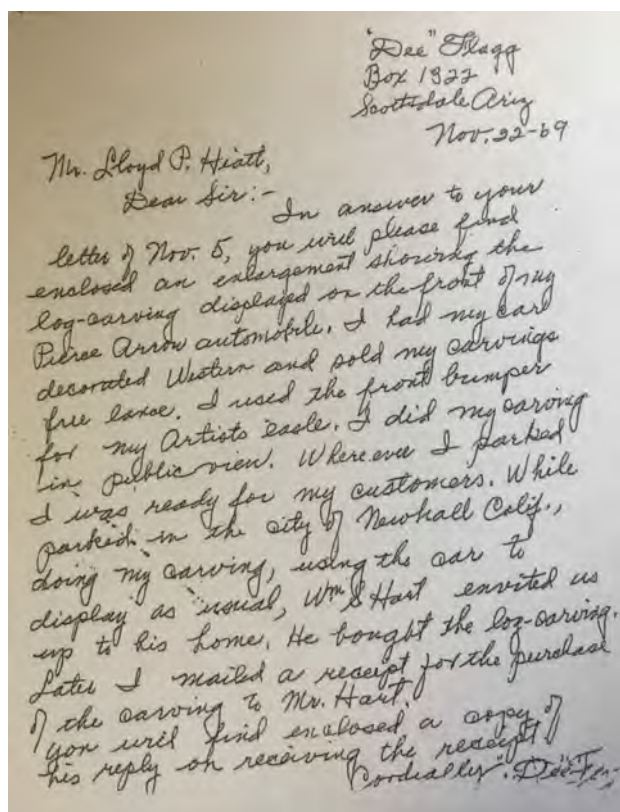 "Dee" Flagg
Box 1322
Scottsdale Ariz
Nov. 22-69
Mr. Lloyd P. Hiatt,
Dear Sir:-
In answer to your
letter of Nov. 5, you will please find
enclosed an enlargement showing the
log-carving displayed on the front of my
Pierce Arrow automobile. I had my car
decorated Western and sold my carvings
free lance. I used the front bumper
for my Artists easle. I did my carving
in public view. Where ever I parked
I was ready for my customers. While
parked in the city of Newhall Calif.,
doing my carving, using the car to
display as usual, Wm S Hart envited us
up to his home. He bought the log-carving.
Later I mailed a receipt for the purchase
of the carving to Mr. Hart.
you will find enclosed a copy of
his reply on receiving the receipt.
Cordially". "Dee"